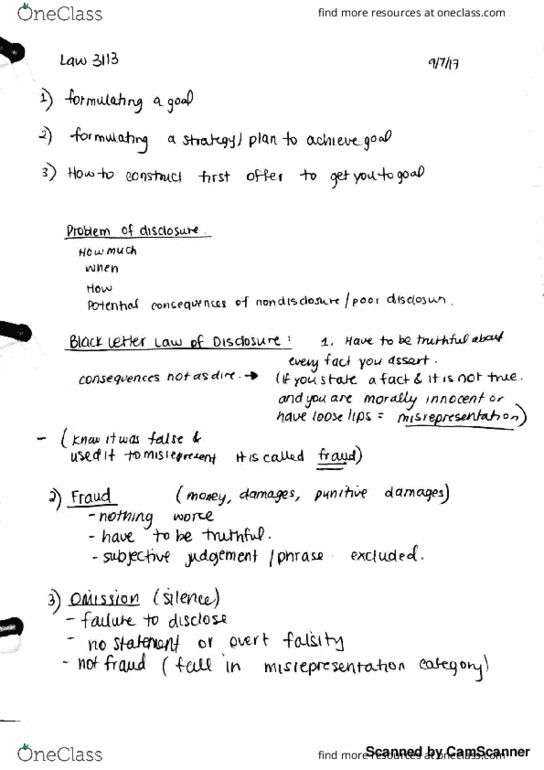 OneClass
find more resources at oneclass.com
Law 3113
9/7/17
1) formulating a goal
2) formulating a strategy/plan to achieve goal
3) How to construct first offer to get you to goal
Problem of disclosure.
How much
when
How
Potential consequences of nondisclosure/poor disclosur.
Black Letter Law of Disclosure: 1. Have to be truthful about
every fact you assert.
consequences not as dire. → (if you state a fact & it is not true.
and you are morally innocent or
have loose lips = misrepresentation)
- (know it was false &
used it to misrepresent it is called fraud)
2) Fraud (money, damages, punitive damages)
- nothing worce
- have to be truthful.
- subjective judgement/phrase excluded.
3) Omission (silence)
- failure to disclose
- no statement or overt falsity
- not fraud (fall in misrepresentation category)
OneClass
find more resources at oneclass.com
Scanned by CamScanner